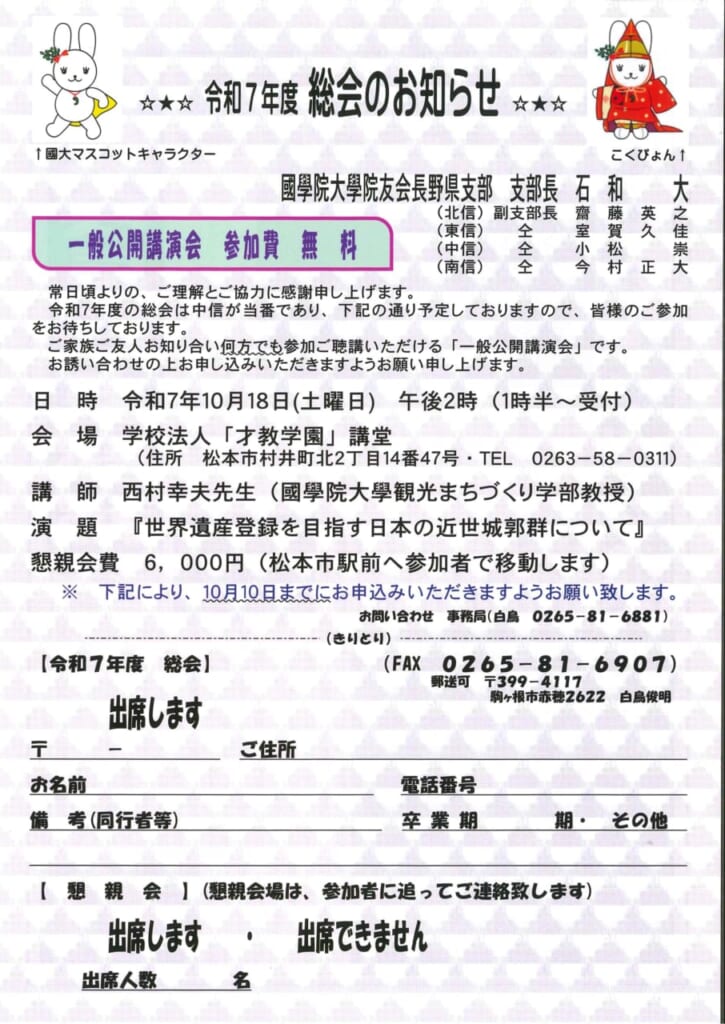 ☆★☆ 令和7年度 総会のお知らせ ☆★☆
↑國大マスコットキャラクター こくぴょん↑
國學院大學院友会長野県支部 支部長 石 和 大
(北信)副支部長 齋 藤 英 之
(東信) 仝 室 賀 久 佳
(中信) 仝 小 松 崇
(南信) 仝 今 村 正 大
一般公開講演会 参加費 無 料
常日頃よりの、ご理解とご協力に感謝申し上げます。
令和7年度の総会は中信が当番であり、下記の通り予定しておりますので、皆様のご参加
をお待ちしております。
ご家族ご友人お知り合い何方でも参加ご聴講いただける「一般公開講演会」です。
お誘い合わせの上お申し込みいただきますようお願い申し上げます。
日 時 令和7年10月18日(土曜日) 午後2時(1時半~受付)
会 場 学校法人「才教学園」講堂
(住所 松本市村井町北2丁目14番47号・TEL 0263-58-0311)
講 師 西村幸夫先生(國學院大學観光まちづくり学部教授)
演 題 『世界遺産登録を目指す日本の近世城郭群について』
懇親会費 6,000円(松本市駅前へ参加者で移動します)
※ 下記により、10月10日までにお申込みいただきますようお願い致します。
お問い合わせ 事務局(白鳥 0265-81-6881)
(きりとり)
【令和7年度 総会】 (FAX 0265-81-6907)
郵送可 〒399-4117
駒ヶ根市赤穂2622 白鳥俊明
出席します
〒 - ご住所
お名前 電話番号
備 考(同行者等) 卒 業 期 期・ その他
【 懇 親 会 】(懇親会場は、参加者に追ってご連絡致します)
出席します ・ 出席できません
出席人数 名